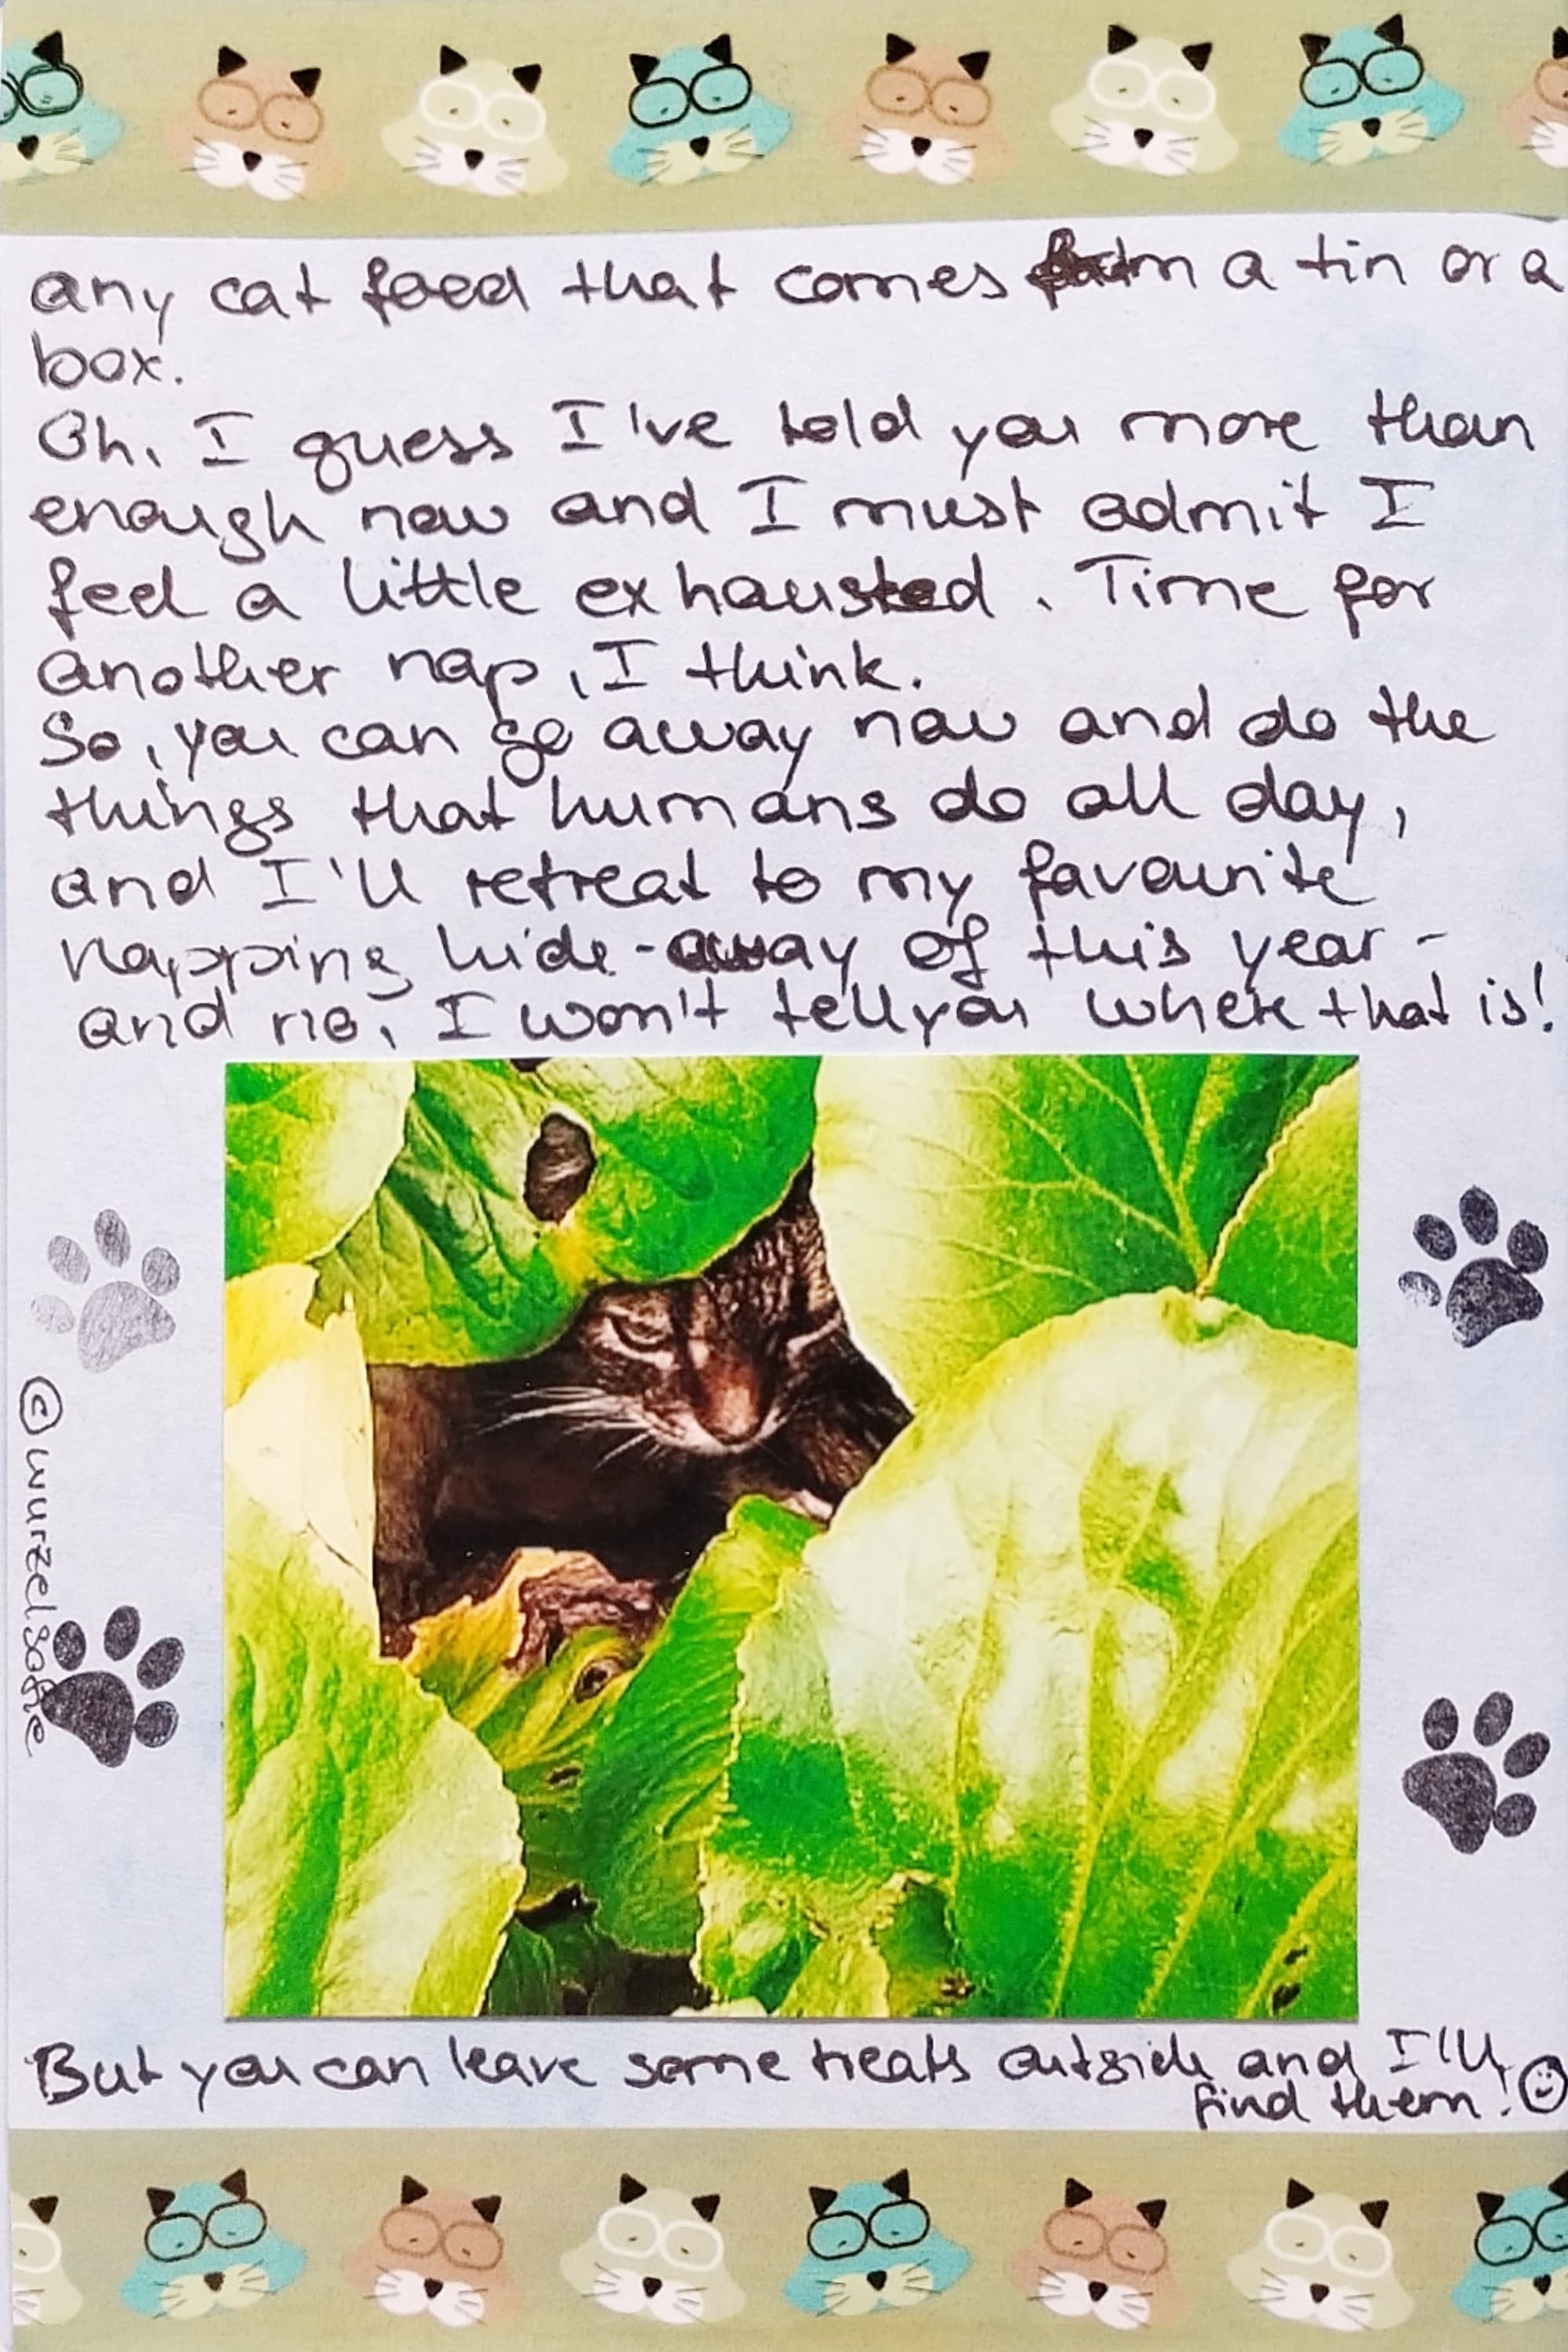 any cat food that comes from a tin or a
box.
Oh, I guess I've told you more than
enough now and I must admit I
feel a little exhausted. Time for
another nap, I think.
So, you can go away now and do the
things that humans do all day,
and I'll retreat to my favourite
napping hide-away of this year -
and no, I won't tell you where that is!
© wurzelsofie
But you can leave some treats outside and I'll
find them! ☺